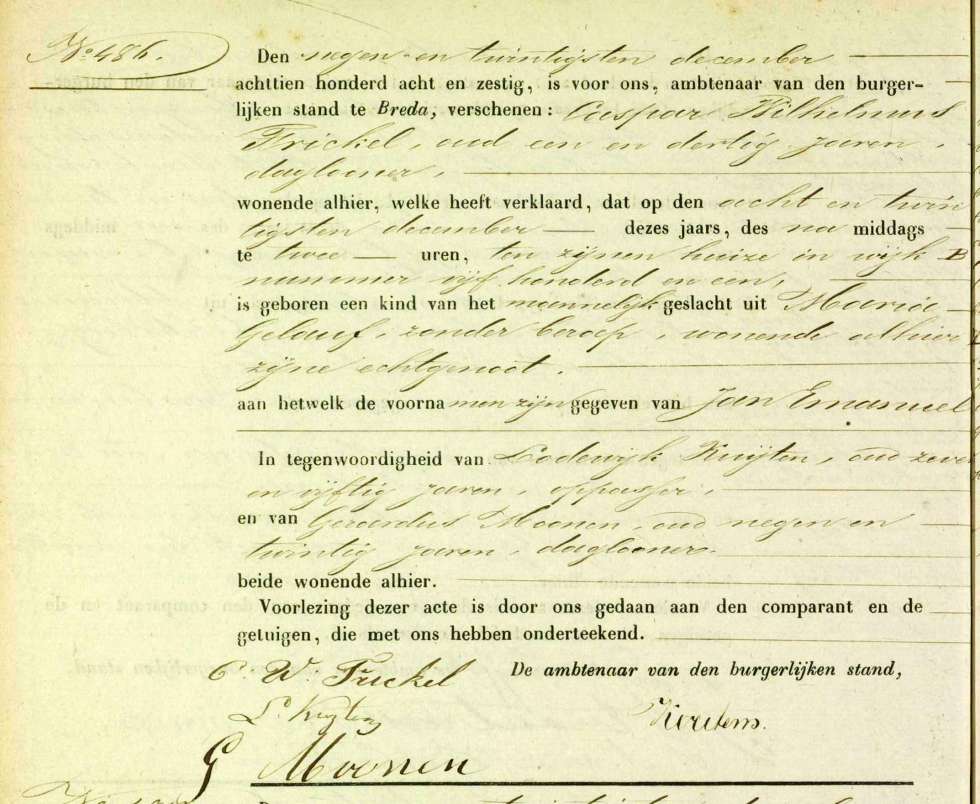 No 486.
Den negen en twintigsten december
achttien honderd acht en zestig, is voor ons, ambtenaar van den burger-
lijken stand te Breda, verschenen: Caspar Wilhelmus
Frickel, oud een en dertig jaren,
daglooner,
wonende alhier, welke heeft verklaard, dat op den acht en twin
tigsten december dezes jaars, des na middags
te twee uren, ten zijnen huize in wijk B
nummer vijf honderd en een,
is geboren een kind van het mannelijk geslacht uit Maria
Gelauf, zonder beroep, wonende alhier
zijne echtgenoot.
aan hetwelk de voornamen zijn gegeven van Jan Emanuel
In tegenwoordigheid van Lodewijk Kuijten, oud zeven
en vijftig jaren, oppasser,
en van Gerardus Moonen, oud negen en
twintig jaren, daglooner.
beide wonende alhier.
Voorlezing dezer acte is door ons gedaan aan den comparant en de
getuigen, die met ons hebben onderteekend.
C. W. Frickel De ambtenaar van den burgerlijken stand,
L. Kuyten
G Moonen